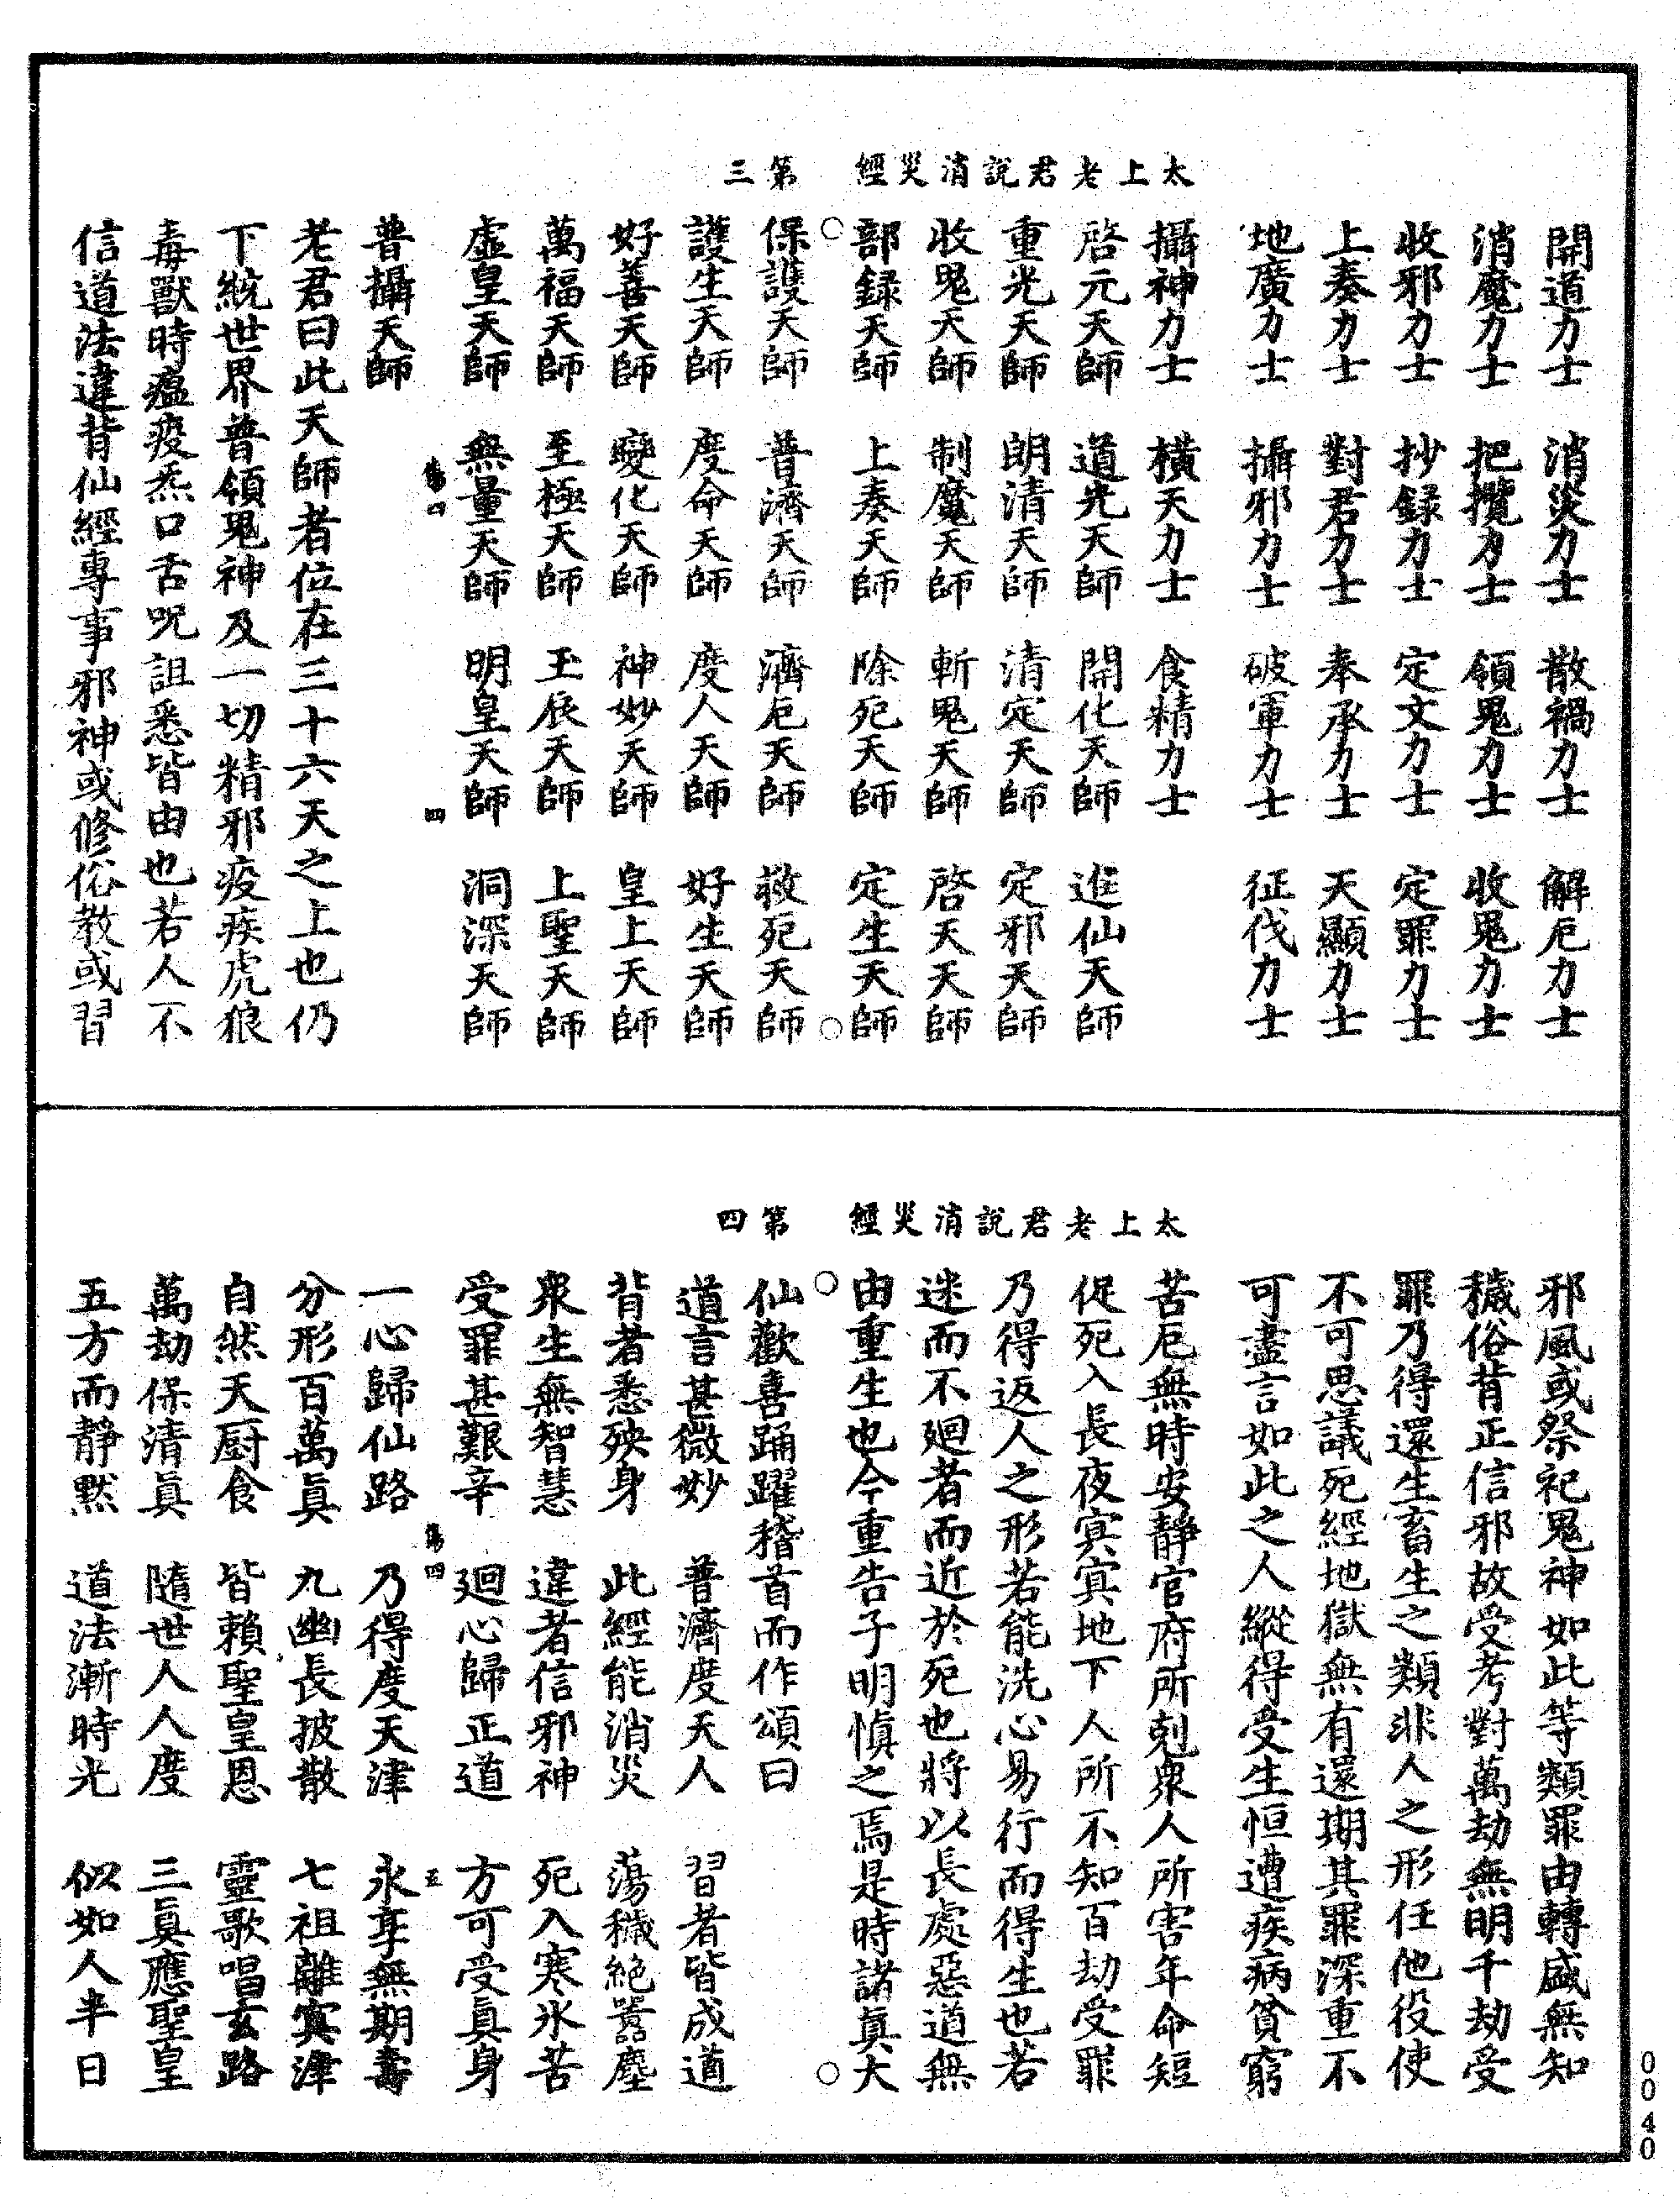 太上老君說消災經　第三
開道力士　消災力士　散禍力士　解厄力士
消魔力士　把攬力士　領鬼力士　收鬼力士
收邪力士　抄録力士　定文力士　定罪力士
上奏力士　對君力士　奉承力士　天顯力士
地廣力士　攝邪力士　破軍力士　征伐力士
攝神力士　橫天力士　食精力士
啓元天師　道光天師　開化天師　進仙天師
重光天師　朗清天師　清定天師　定邪天師
收鬼天師　制魔天師　斬鬼天師　啓天天師
部録天師　上奏天師　除死天師　定生天師
保護天師　普濟天師　濟厄天師　救死天師
護生天師　度命天師　度人天師　好生天師
好善天師　變化天師　神妙天師　皇上天師
萬福天師　至極天師　玉辰天師　上聖天師
虛皇天師　無量天師　明皇天師　洞深天師
傷四　四
普攝天師
老君曰此天師者位在三十六天之上也仍
下統世界普領鬼神及一切精邪疫疾虎狼
毒獸時瘟疫炁口舌呪詛悉皆由也若人不
信道法違背仙經專事邪神或修俗教或習
太上老君說消災經　第四
邪風或祭祀鬼神如此等類罪由轉盛無知
穢俗背正信邪故受考對萬劫無明千劫受
罪乃得還生畜生之類非人之形任他役使
不可思議死經地獄無有還期其罪深重不
可盡言如此之人縱得受生恒遭疾病貧窮
苦厄無時安靜官府所剋衆人所害年命短
促死入長夜寘寘地下人所不知百劫受罪
乃得返人之形若能洗心易行而得生也若
迷而不廻者而近於死也將以長處惡道無
由重生也今重告子明慎之焉是時諸眞大
仙歡喜踊躍稽首而作頌曰
道言甚微妙　普濟度天人　習者皆成道
背者悉殃身　此經能消災　蕩穢絶囂塵
衆生無智慧　違者信邪神　死入寒氷苦
受罪甚艱辛　廻心歸正道　方可受眞身
傷四　五
一心歸仙路　乃得度天津　永享無期壽
分形百萬眞　九幽長披散　七祖離寘津
自然天厨食　皆賴聖皇恩　靈歌唱玄路
萬劫保清眞　隨世人人度　三眞應聖皇
五方而靜默　道法漸時光　似如人半日
0040